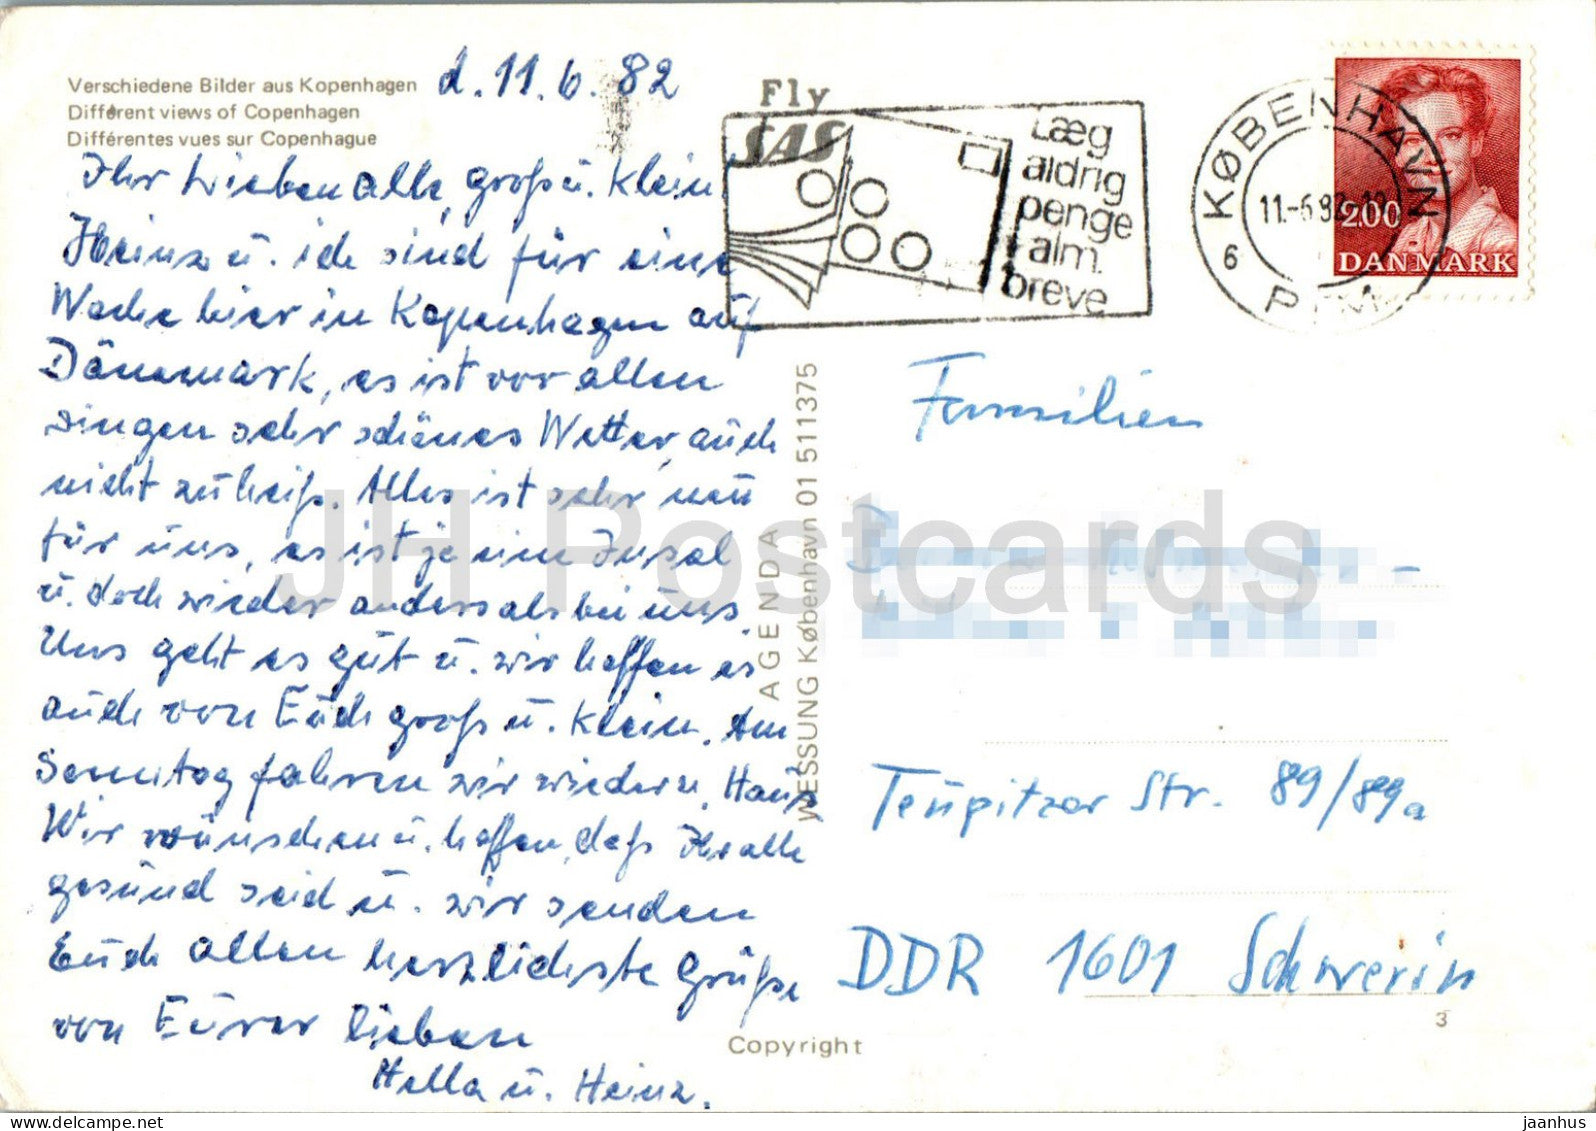 Verschiedene Bilder aus Kopenhagen
Different views of Copenhagen
Différentes vues sur Copenhague
d. 11.6.82
Ihr Lieben alle, groß u. klein.
Heinz u. ich sind für eine
Woche hier in Kopenhagen auf
Dänemark, es ist vor allen
Dingen sehr schönes Wetter, auch
nicht zu heiß. Alles ist sehr neu
für uns, es ist je eine Insel
u. doch wieder anders als bei uns.
Uns geht es gut u. wir hoffen es
auch von Euch groß u. klein. Am
Sonntag fahren wir wieder n. Haus
Wir wünschen u. hoffen, daß Ihr alle
gesund seid u. wir senden
Euch allen herzlichste Grüße
von Eurer lieben
Hella u. Heinz.
Fly
SAS
Læg
aldrig
penge
i alm.
breve
KØBENHAVN
11.-6.82
6
P
M
2.00
DANMARK
AGENDA
WESSUNG København 01 511375
Familien
Teupitzer Str. 89/89a
DDR 1601 Schwerin
3
Copyright
JH Postcards
www.delcampe.net
jaanhus